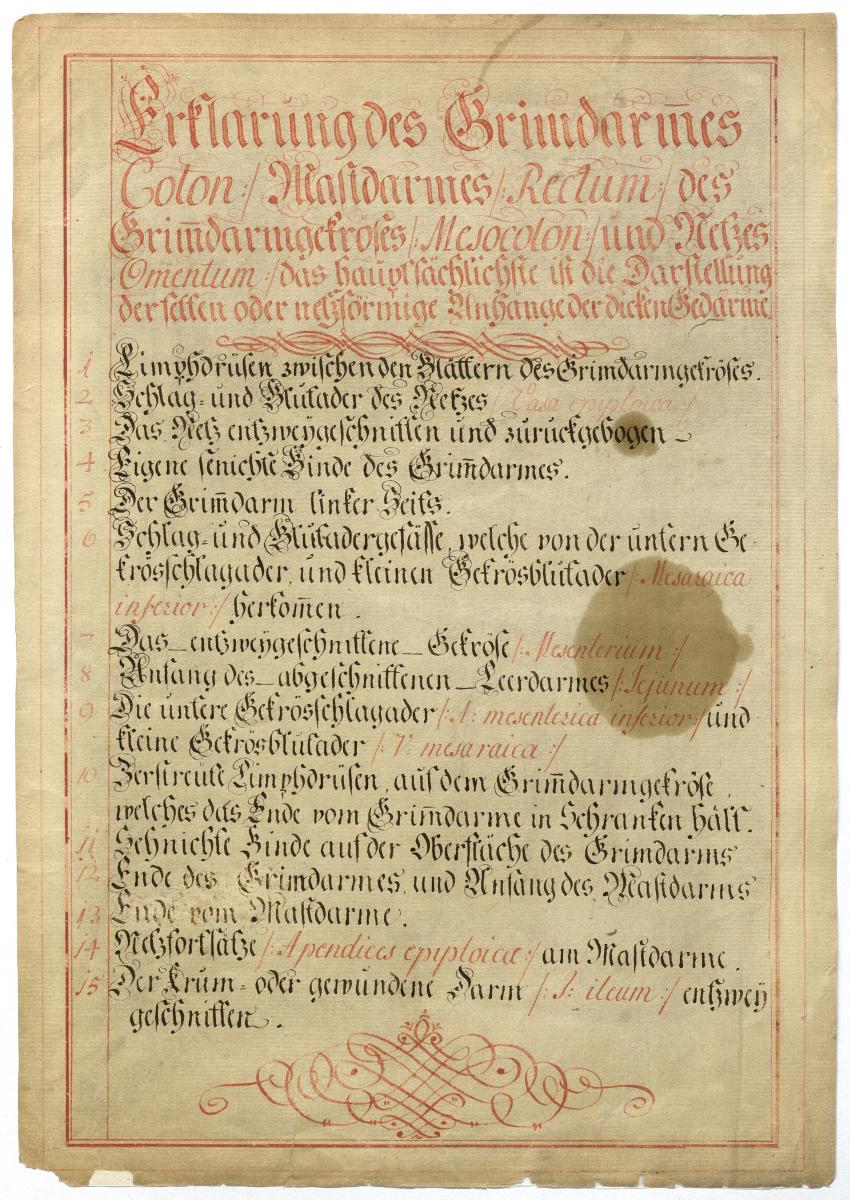 Erklarung des Grimdarm̄es
Colon :/ Mastdarmes /: Rectum :/ des
Grim̄darmgekröses /: Mesocolon :/ und Netzes
Omentum :/ das hauptsächlichste ist die Darstellung
der fetten oder netzförmige Anhange der dicken Gedärme
1 Limphdrüsen zwischen den Blättern des Grimdarmgekröses.
2 Schlag- und Blutader des Netzes /: Vasa epiploica :/
3 Das Netz entzweygeschnitten und zurückgebogen –
4 Eigene senichte Binde des Grim̄darmes.
5 Der Grim̄darm linker Seits.
6 Schlag- und Blutadergefässe, welche von der untern Ge-
krösschlagader, und kleinen Gekrösblutader /: Mesaraica
inferior :/ herkom̄en.
7 Das – entzweygeschnittene – Gekröse /: Mesenterium :/
8 Anfang des – abgeschnittenen – Leerdarmes /: Jejunum :/
9 Die untere Gekrösschlagader /: A: mesenterica inferior :/ und
kleine Gekrösblutader /: V: mesaraica :/
10 Zerstreute Limphdrüsen, auf dem Grim̄darmgekröse,
welches das Ende vom Grim̄darme in Schranken hält.
11 Sehnichte Binde auf der Oberfläche des Grimdarms
12 Ende des Grimdarmes, und Anfang des Mastdarms
13 Ende vom Mastdarme.
14 Netzfortsätze /: Apendices epiploicæ :/ am Mastdarme.
15 Der Krum- oder gewundene Darm /: J: ileum :/ entzwey
geschnitten.